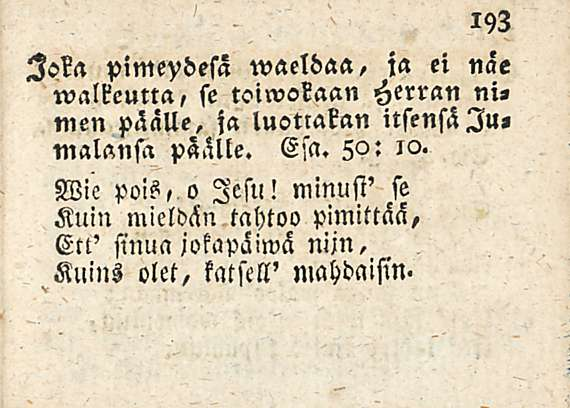 193
Joka pimeydesä waeldaa, ja ei näe
walkeutta, se toiwokaan Herran ni⸗
men päälle, ja luottakan itsensä Ju⸗
malansa päälle. Esa. 50: 10.
Wie pois, o Jesu! minust' se
Kuin mieldän tahtoo pimittää,
Ett' sinua jokapäiwä nijn,
Kuins olet, katsell' mahdaisin.